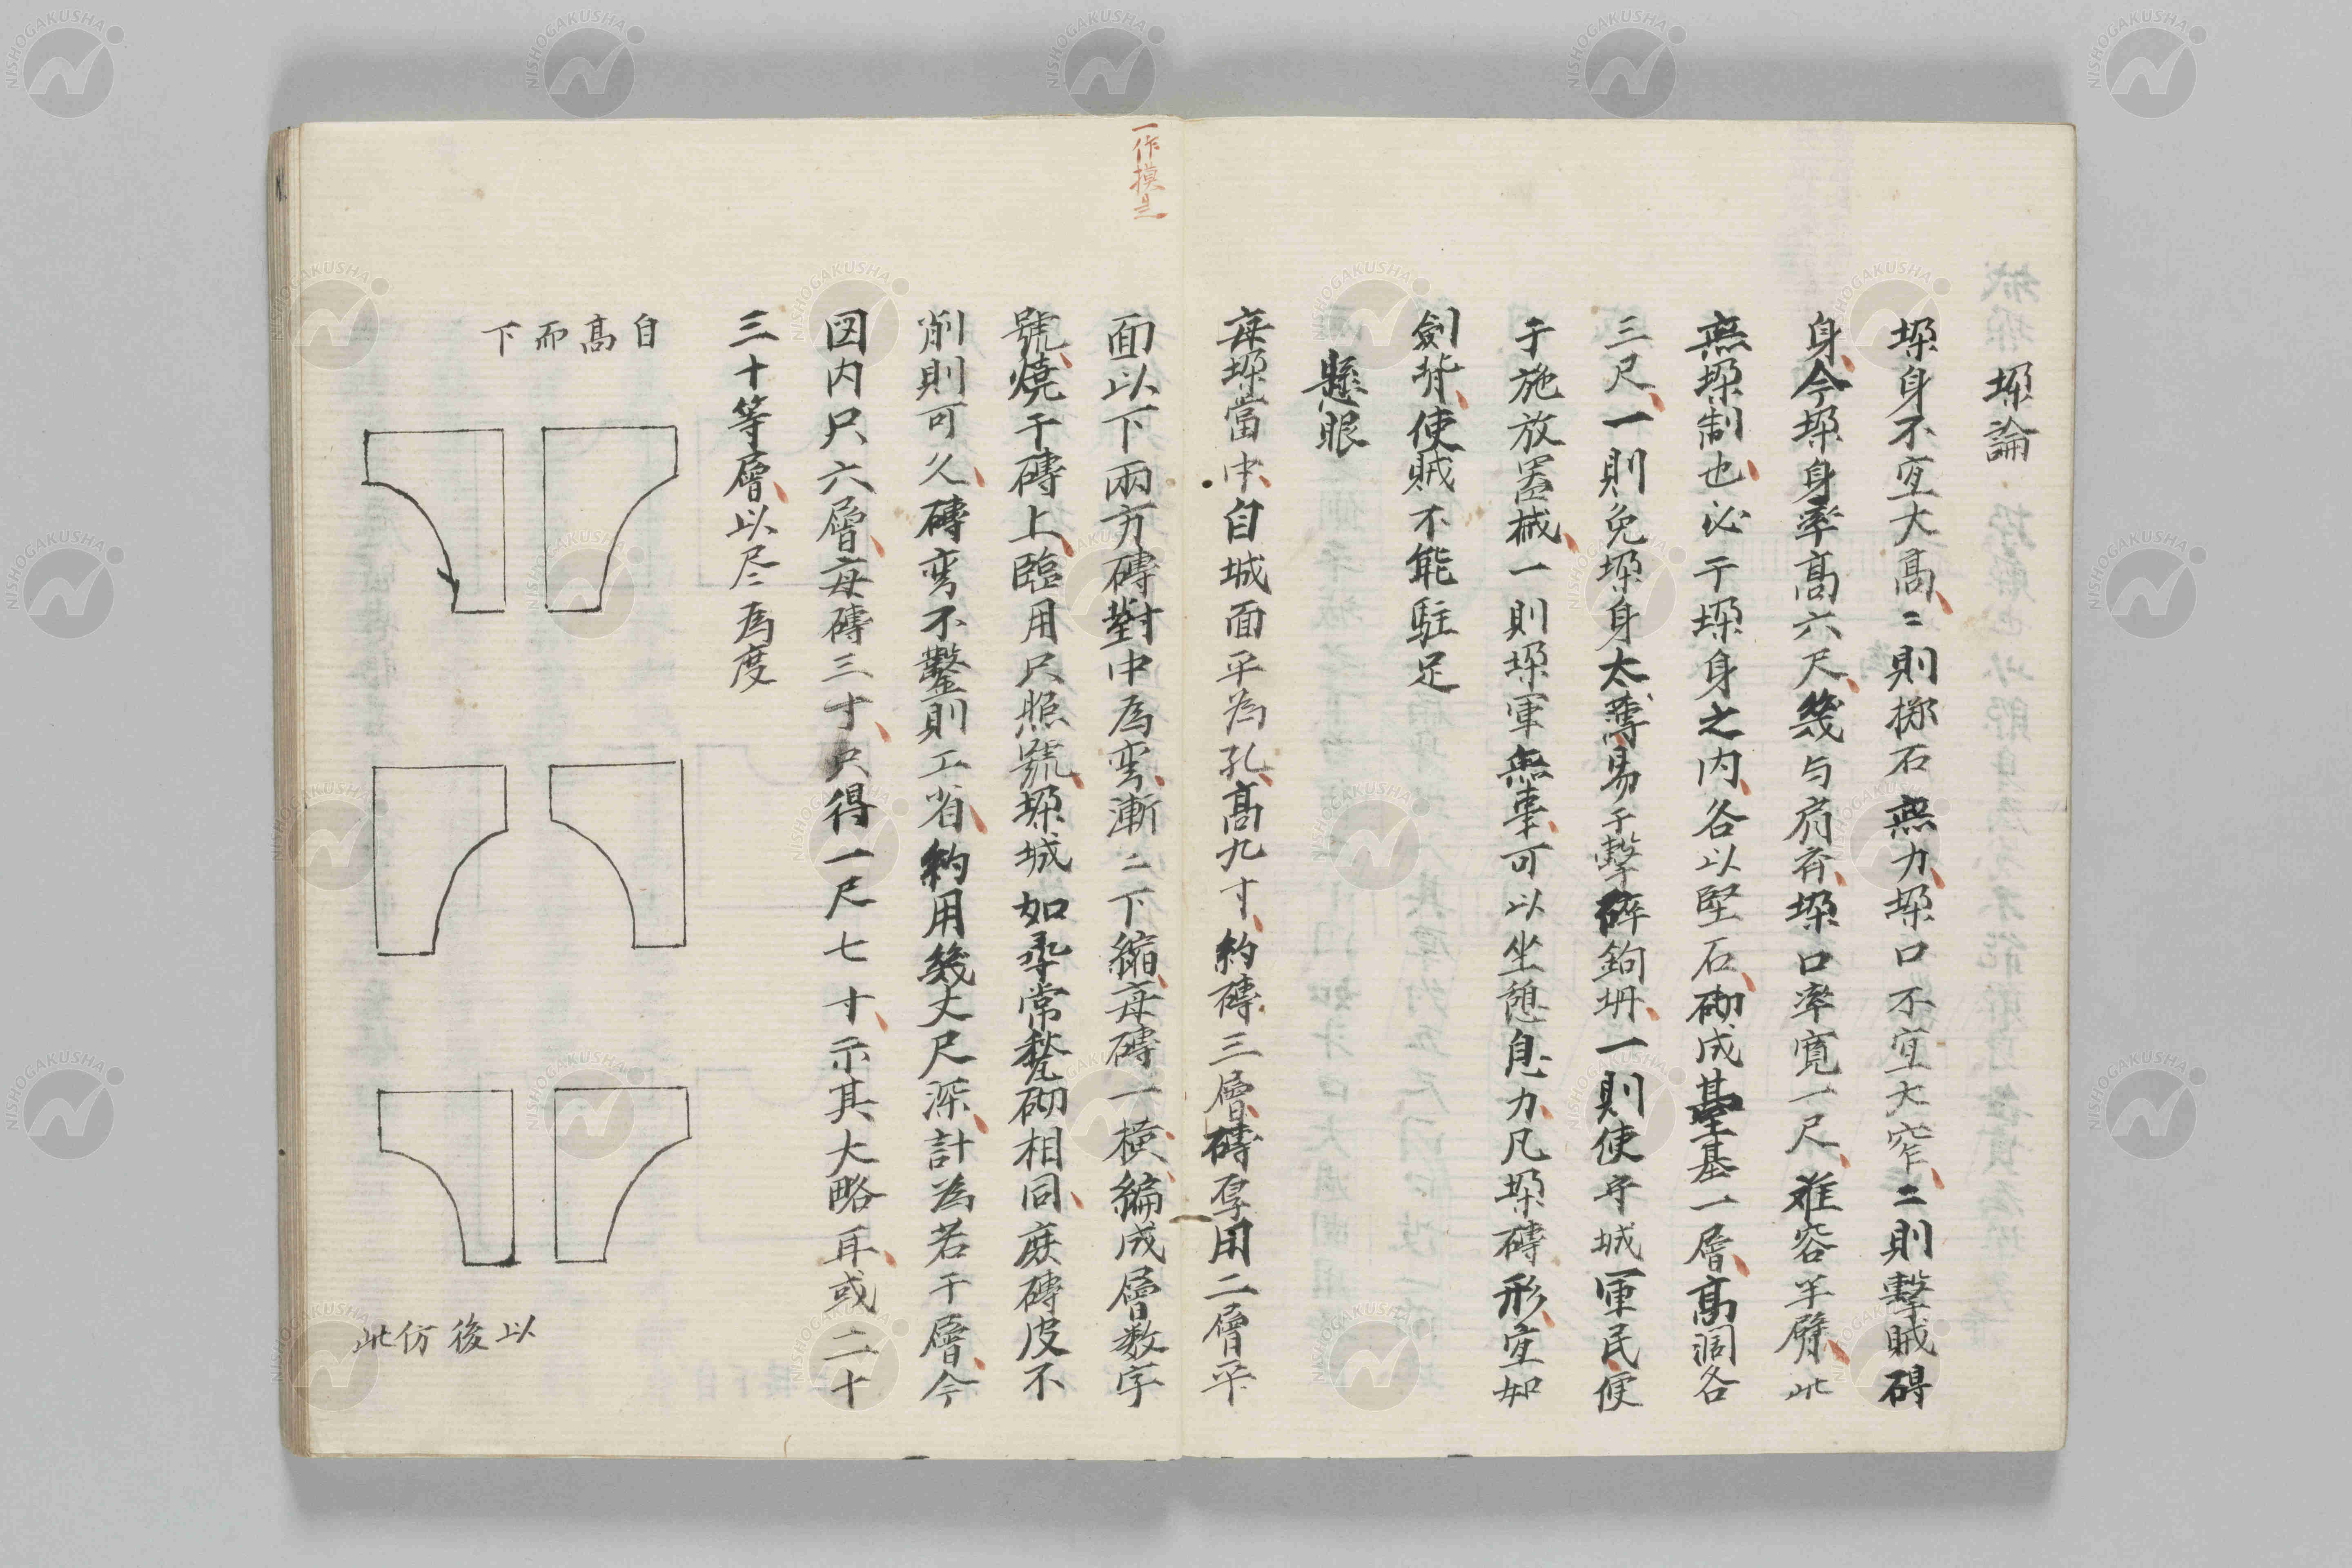 垜論
垜身不宜大高〻則擲石無力垜口不宜大窄〻則擊賊碍
身今垜身率高六尺幾与肩斉垜口率寛一尺难容半臂此
無垜制也必于垜身之内各以堅石砌成基一層高濶各
三尺一則免垜身太薄易于擊碎鉤坍一則使守城軍民便
于施放噐械一則垜軍無事可以坐憩息力凡垜磚形宜如
劍脊使賊不能駐足
懸眼
每垜當中自城面平為孔高九寸約磚三層磚厚用二層平
面以下兩方磚對中為弯漸〻下縮每磚一横編成層数字
號燒于磚上臨用只照號垜城如尋常甃砌相同庶磚皮不
削則可久磚弯不鑿則工省約用幾丈尺深計為若干層今
図内只六層每磚三寸只得一尺七寸示其大略耳或二十
三十等層以尽〻為度
一作摸是
自高而下
以後仿此
NISHOGAKUSHA